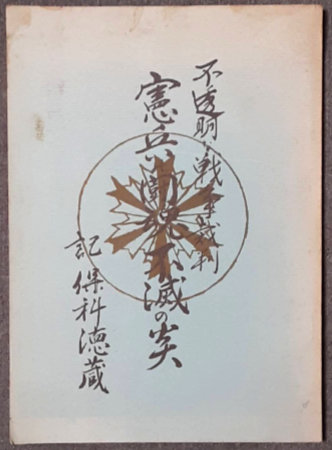 不透明な戦争裁判
憲兵闘魂不滅の炎
記 保科徳蔵